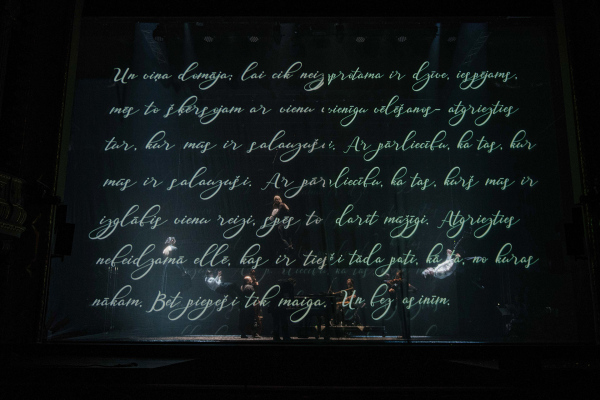 Un viņa domāja: lai cik neizprotama ir dzīve, iespējams,
mēs to šķērsojam ar vienu vienīgu vēlēšanos- atgriezties
tur, kur mūs ir salauzuši. Ar pārliecību, ka tas, kur
mūs ir salauzuši. Ar pārliecību, ka tas, kurš mūs ir
izglābis vienu reizi, spēs to darīt mūžīgi. Atgriezties
nebeidzamā ellē, kas ir tieši tāda pati, kā tā, no kuras
nākam. Bet piepeši tik maiga. Un bez asinīm.